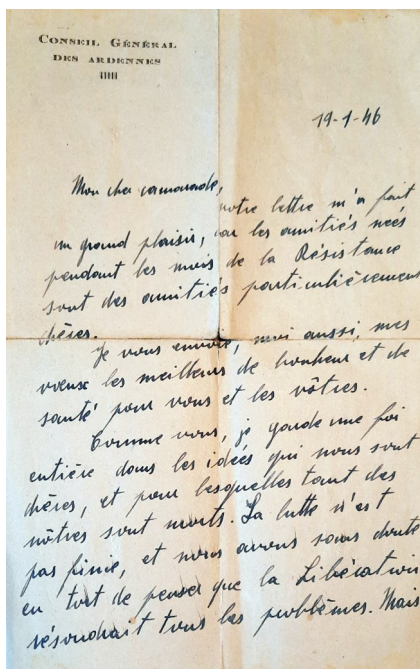 CONSEIL GÉNÉRAL
DES ARDENNES
19-1-46
Mon cher camarade,
votre lettre m'a fait
un grand plaisir, car les amitiés nées
pendant les mois de la Résistance
sont des amitiés particulièrement
chères.
Je vous envoie, moi aussi, mes
voeux les meilleurs de bonheur et de
santé pour vous et les vôtres.
Comme vous, je garde une foi
entière dans les idées qui nous sont
chères, et pour lesquelles tant des
nôtres sont morts. La lutte n'est
pas finie, et nous avons sans doute
eu tort de penser que la Libération
résoudrait tous les problèmes. Mais